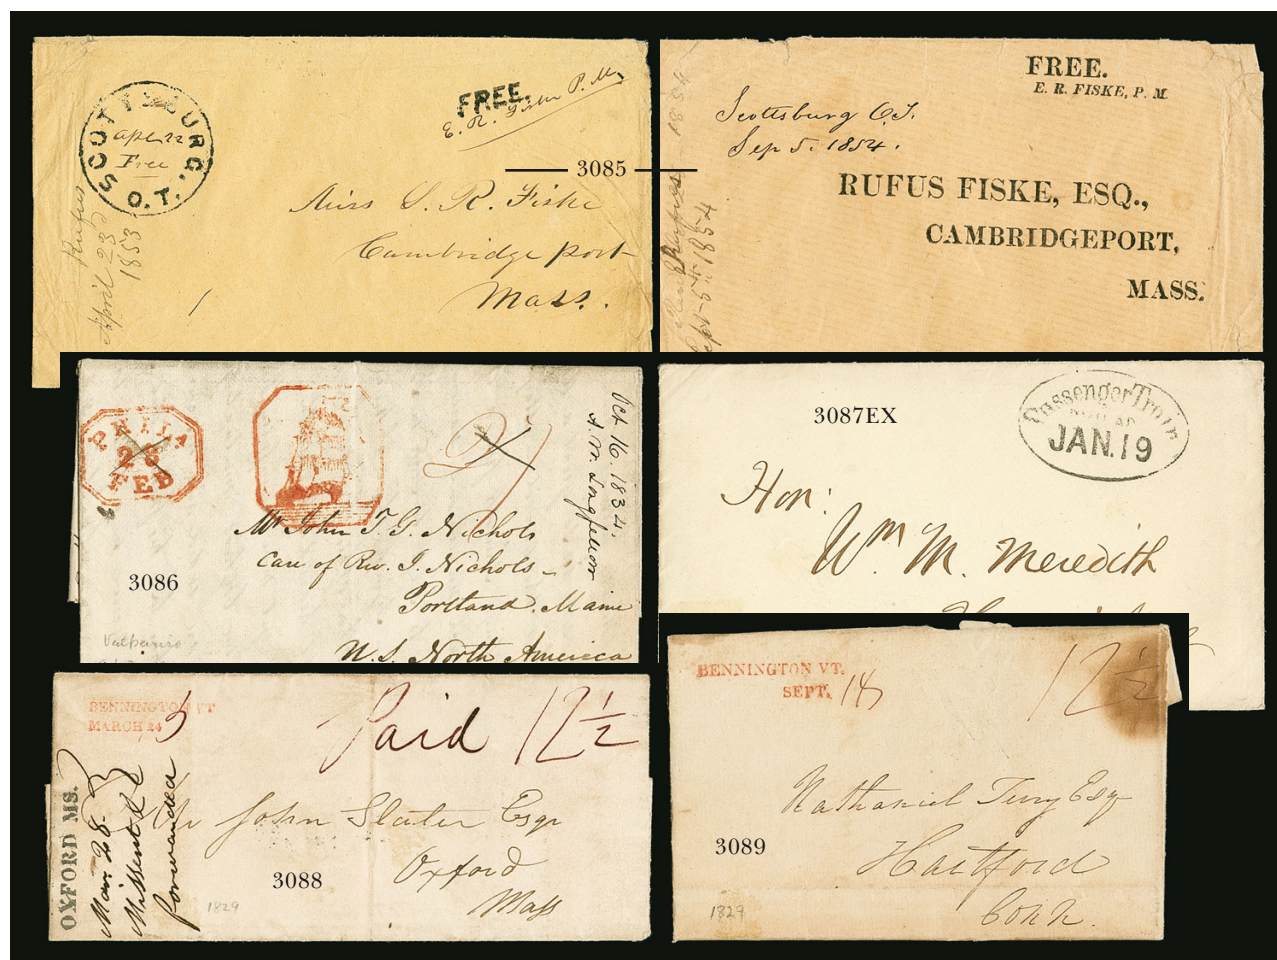 SCOTTSBURG, O.T.
Apl 22
Free
FREE.
E. R. Fiske P. M.
3085
Miss S. R. Fiske
Cambridge port
Mass.
Rufus
April 23d
1853
FREE.
E. R. FISKE, P. M.
Scottsburg O.T.
Sep 5. 1854.
RUFUS FISKE, ESQ.,
CAMBRIDGEPORT,
MASS.
1854
PHILA
28
FEB
Oct 16. 1834.
A. W. Longfellow
Mr John T. G. Nichols
Care of Rev. I. Nichols
Portland. Maine
U. S. North America
3086
Valparaiso
3087EX
Passenger Train
JAN. 19
Hon:
Wm M. Meredith
BENNINGTON VT
MARCH 24
Paid 12½
OXFORD MS.
Mar. 28
Missent &
forwarded
John Slater Esqr
Oxford
Mass
3088
1829
BENNINGTON VT.
SEPT. 18
12½
Nathaniel Terry Esq
Hartford
Conn.
3089
1829